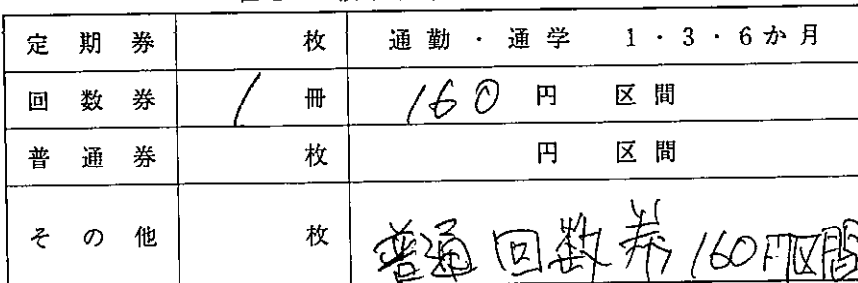 定期券 枚 通勤・通学 1・3・6か月
回数券 1 冊 160 円 区間
普通券 枚 円 区間
その他 枚 普通回数券160円区間